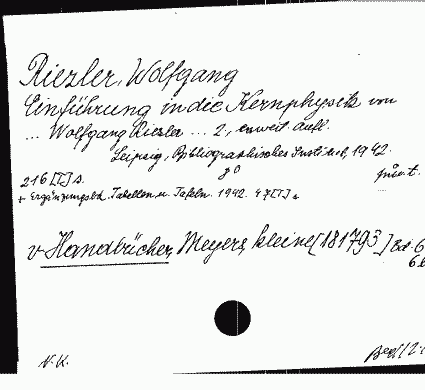 Riezler, Wolfgang
Einführung in die Kernphysik von
... Wolfgang Riezler ... 2, erweit. Aufl.
Leipzig, Bibliographisches Institut, 1942.
216 [1] s. 8°
+ Ergänzungsbd. Tabellen u. Tafeln. 1942. 47 [1] s.
v Handbücher, Meyers, kleine [181793] Bd. 6
N.K.